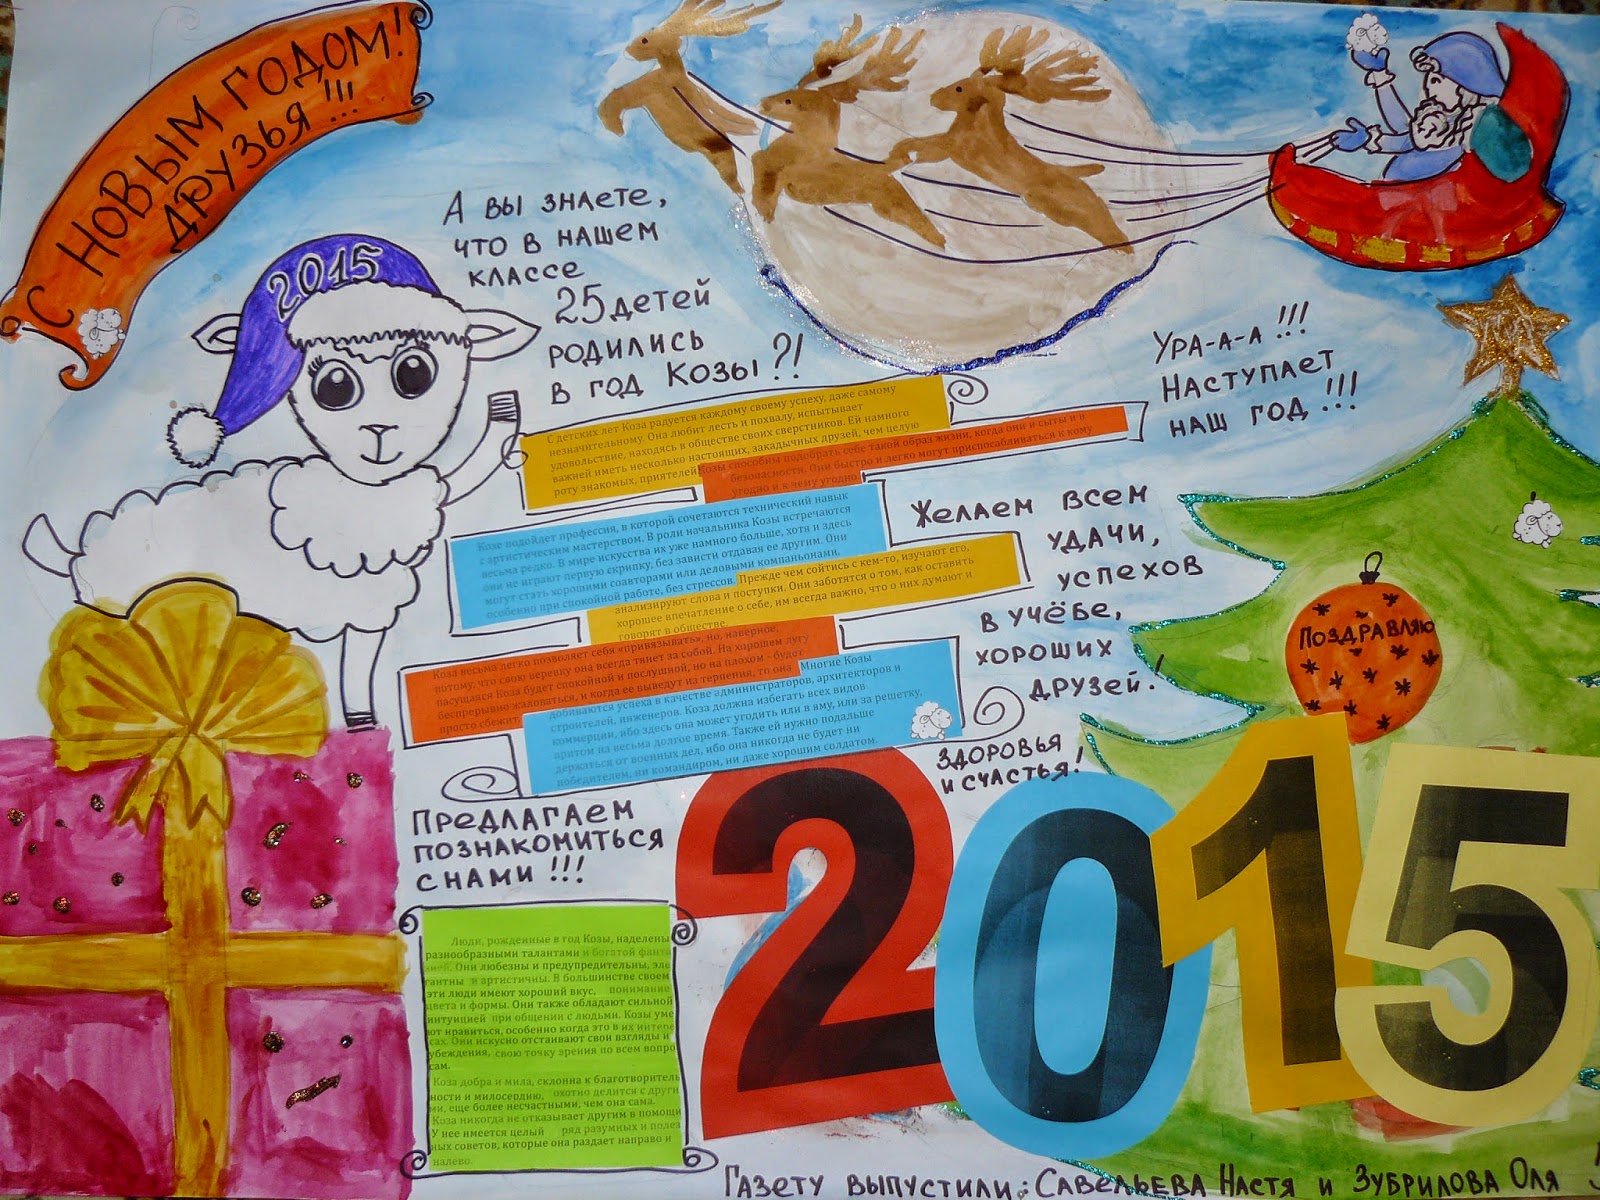 С НОВЫМ ГОДОМ!
ДРУЗЬЯ!!!
2015
А вы знаете,
что в нашем
классе
25 детей
родились
в год Козы?!
Ура-а-а!!!
Наступает
наш год!!!
С детских лет Коза радуется каждому своему успеху, даже самому
незначительному. Она любит лесть и похвалу, испытывает
удовольствие, находясь в обществе своих сверстников. Ей намного
важней иметь несколько настоящих, закадычных друзей, чем целую
роту знакомых, приятелей.
Козы способны подобрать себе такой образ жизни, когда они и сыты и в
безопасности. Они быстро и легко могут приспосабливаться к кому
угодно и к чему угодно
Козе подойдет профессия, в которой сочетаются технический навык
с артистическим мастерством. В роли начальника Козы встречаются
весьма редко. В мире искусства их уже намного больше, хотя и здесь
они не играют первую скрипку, без зависти отдавая ее другим. Они
могут стать хорошими соавторами или деловыми компаньонами.
особенно при спокойной работе, без стрессов.
Прежде чем сойтись с кем-то, изучают его,
анализируют слова и поступки. Они заботятся о том, как оставить
хорошее впечатление о себе, им всегда важно, что о них думают и
говорят в обществе.
Коза весьма легко позволяет себя «привязывать», но, наверное,
потому, что свою веревку она всегда тянет за собой. На хорошем лугу
пасущаяся Коза будет спокойной и послушной, но на плохом - будет
беспрерывно жаловаться, и когда ее выведут из терпения, то она
просто сбежит.
Многие Козы
добиваются успеха в качестве администраторов, архитекторов и
строителей, инженеров. Коза должна избегать всех видов
коммерции, ибо здесь она может угодить или в яму, или за решетку,
притом на весьма долгое время. Также ей нужно подальше
держаться от военных дел, ибо она никогда не будет ни
победителем, ни командиром, ни даже хорошим солдатом.
Желаем всем
удачи,
успехов
в учёбе,
хороших
друзей.!
здоровья
и счастья!
Поздравляю
Предлагаем
познакомиться
с нами!!!
Люди, рожденные в год Козы, наделены
разнообразными талантами и богатой фанта
зией. Они любезны и предупредительны, эле
гантны и артистичны. В большинстве своем
эти люди имеют хороший вкус, понимание
цвета и формы. Они также обладают сильной
интуицией при общении с людьми. Козы уме
ют нравиться, особенно когда это в их интере
сах. Они искусно отстаивают свои взгляды и
убеждения, свою точку зрения по всем вопро
сам.
Коза добра и мила, склонна к благотворитель
ности и милосердию, охотно делится с други
ми, еще более несчастными, чем она сама.
Коза никогда не отказывает другим в помощи
У нее имеется целый ряд разумных и полез
ных советов, которые она раздает направо и
налево.
2015
Газету выпустили: Савельева Настя и Зубрилова Оля